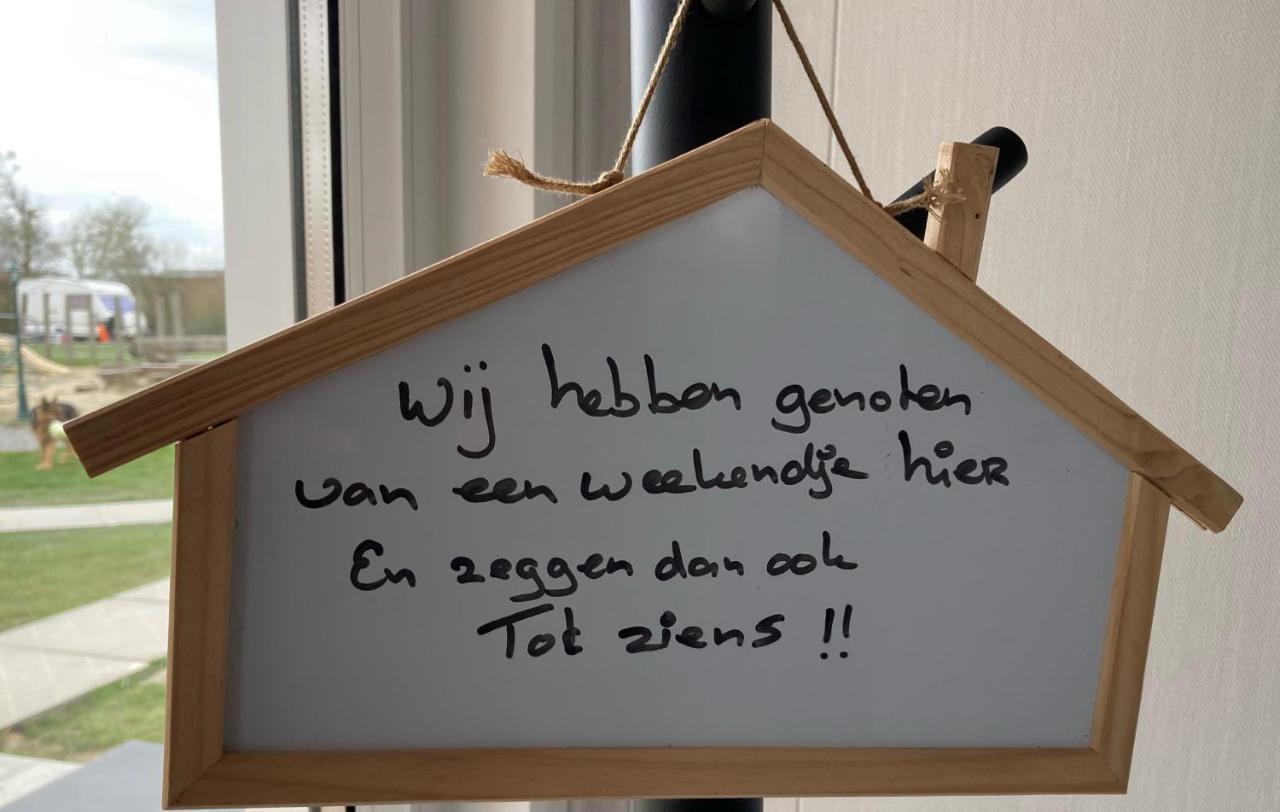 Wij hebben genoten
van een weekendje hier
En zeggen dan ook
Tot ziens !!